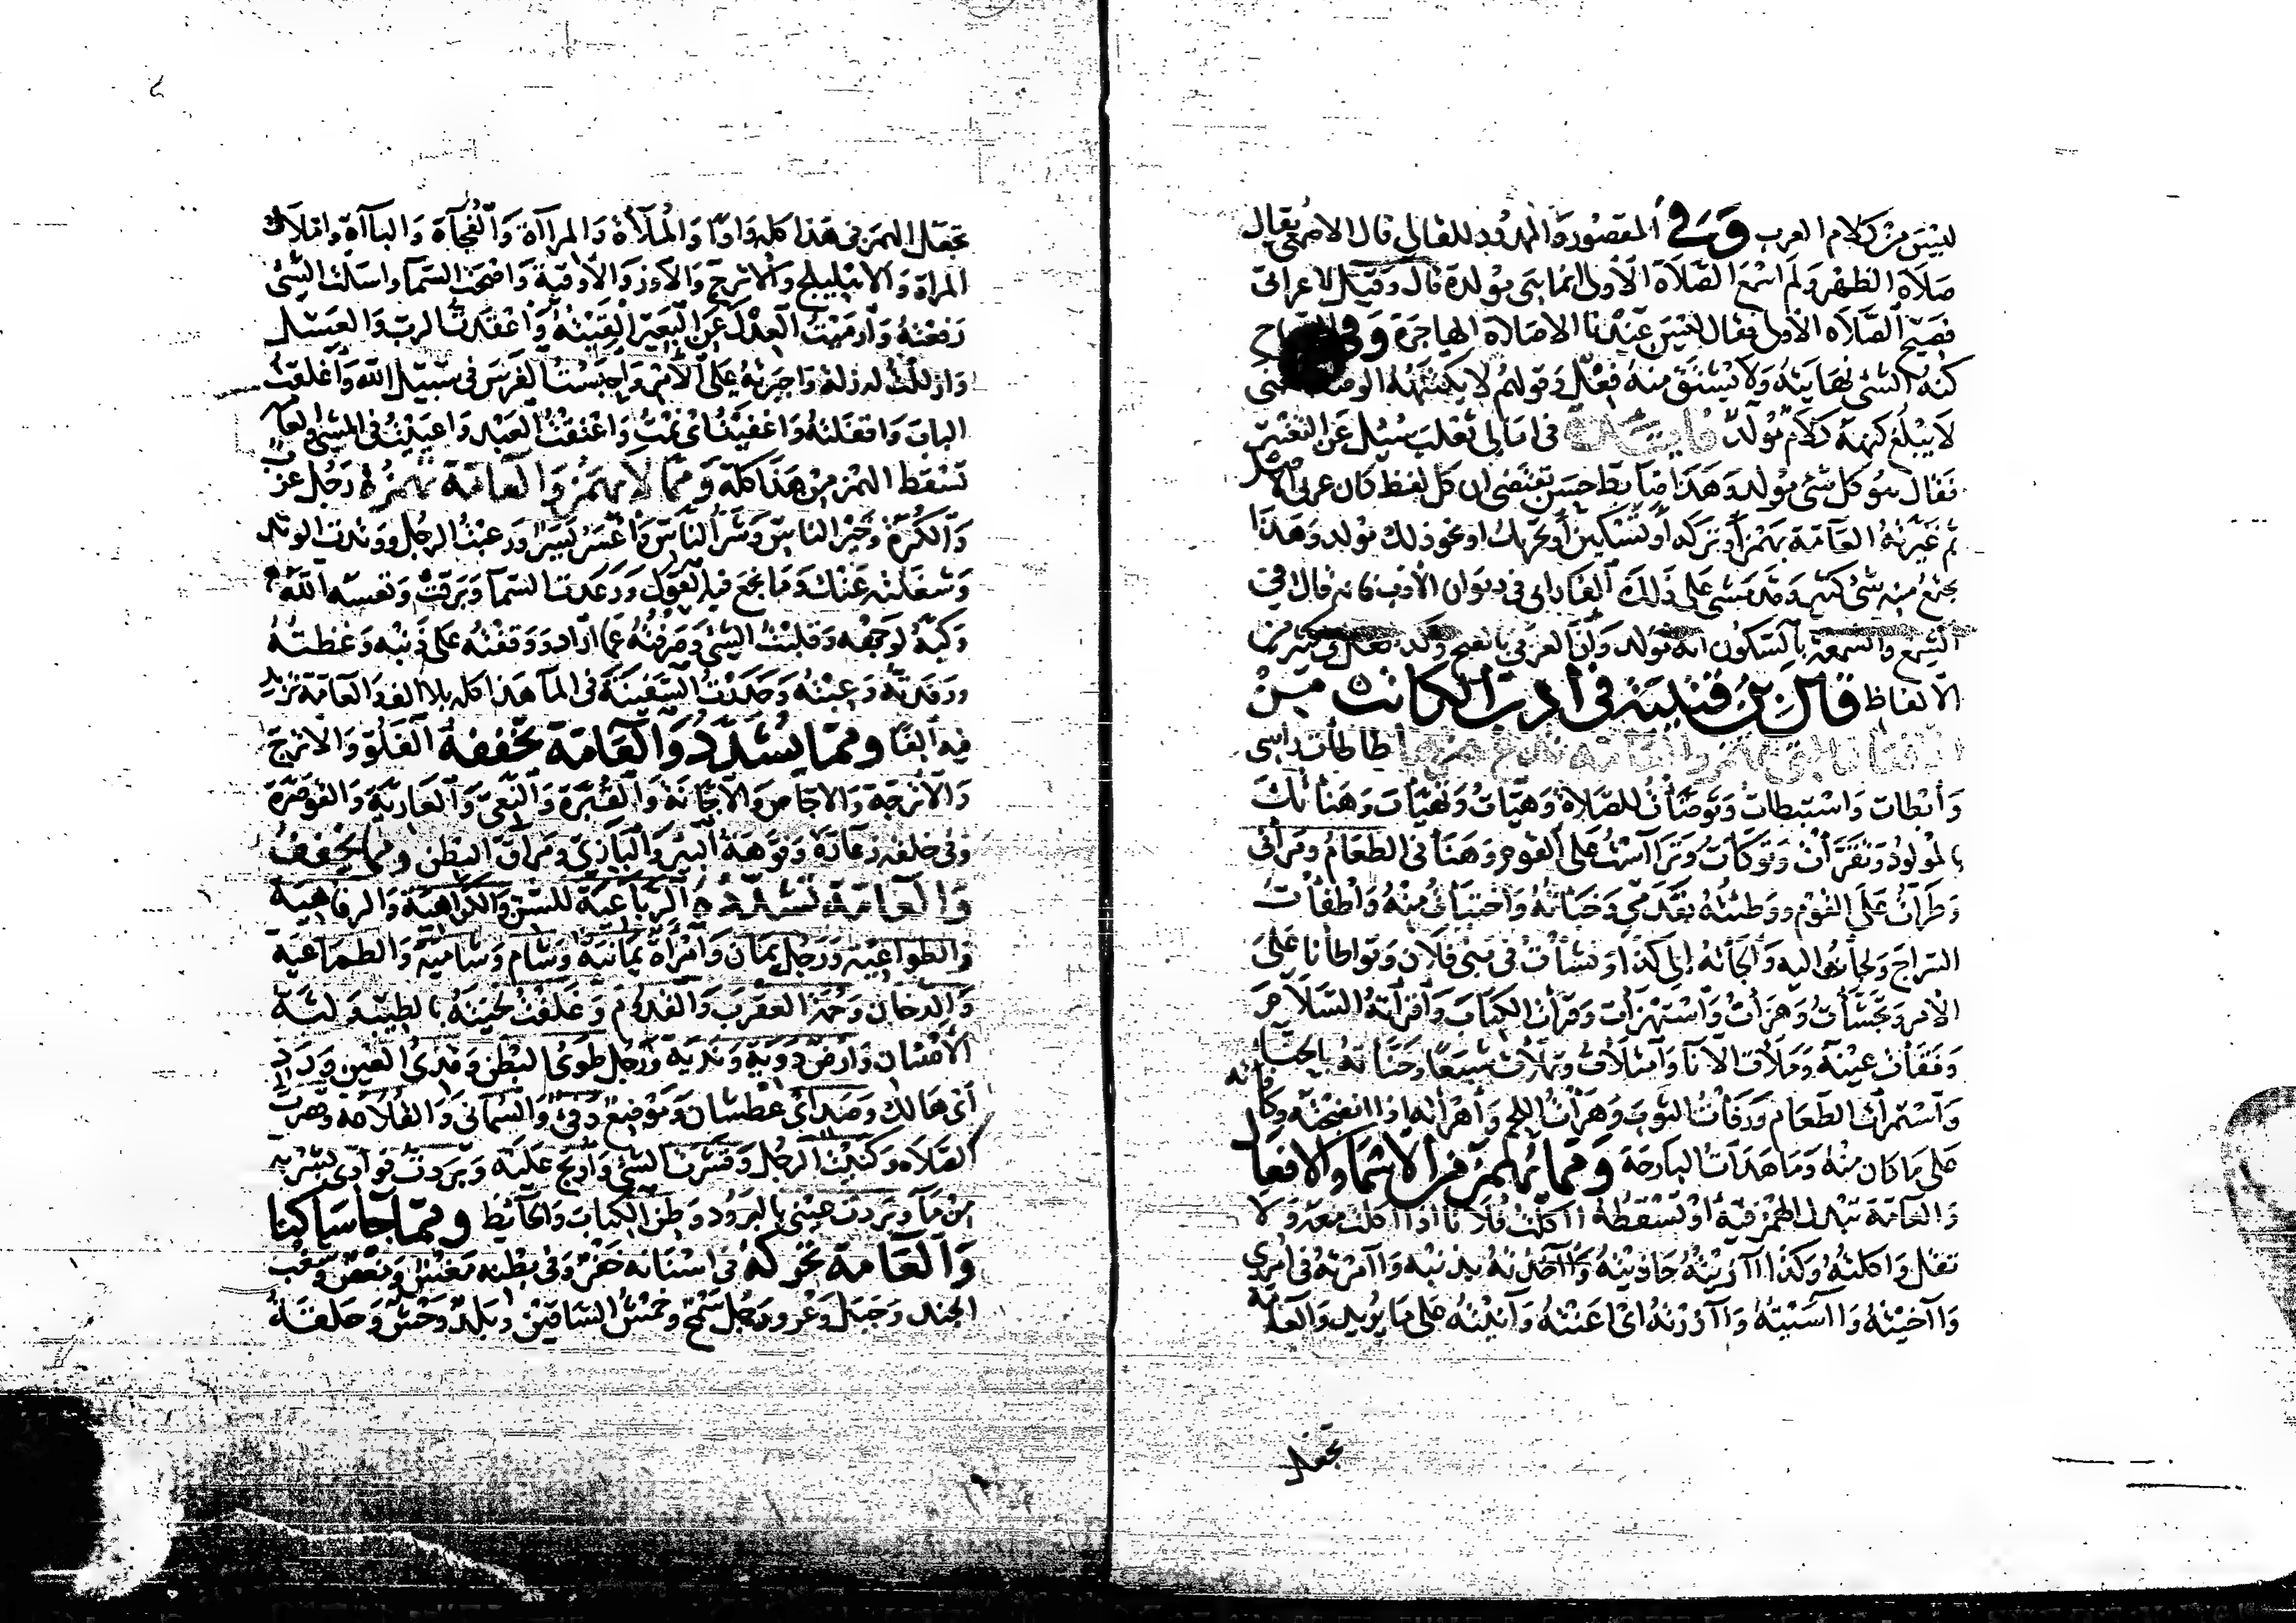 ليس من كلام العرب وفي المقصور والممدود للقالي قال الاصمعي يقال
صلاة الظهر ولم اسمع الصلاة الأولى انما هي مولدة قال وقيل لاعرابي
فصيح الصلاه الاولى فقال ليس عندنا الا صلاة الهاجرة وفي
كنه الشئ نهايته ولا يشتق منه فعل وقولهم لا يكتنهه
لا يبلغ كنهه كلام مولد فايدة في امالي ثعلب سئل عن التغيير
فقال هو كل شئ مولد وهذا ضابط حسن يقتضي ان كل لفظ كان عربي الاصل
ثم غيرته العامة بهمز أو تركه أو تسكين أو تحريك او نحو ذلك مولد وهذا
يجتمع منه شئ كثير وقد مشى على ذلك الفارابي في ديوان الأدب فانه قال في
الشمع والشمعة بالسكون انه مولد وان العربي بالفتح وكذا فعل في كثير من
الالفاظ قال بن قتيبة في أدب الكاتب من
طاطأت راسي
وأبطات واستبطات وتوضأت للصلاة وهيات وتهيات وهنأتك
بالمولود وتقرأت وتوكأت وترأست على القوم وهنأني الطعام ومرأني
وطرأت على القوم ووطئته بقدمي وخبأته واختبأت منه وأطفأت
السراج ولجأت اليه وألجأته إلى كذا ونشأت في بني فلان وتواطأنا على
الأمر وتجشأت وهزأت واستهزأت وقرأت الكتاب وأقرأته السلام
وفقأت عينه وملأت الانآ وامتلأت وتملأت شبعا وحنأته بالحنآ
واستمرأت الطعام ورفأت الثوب وهرأت اللحم وأهرأته اذا انضجته وكافأته
على ما كان منه وما هدأت البارحة ومما يهمز من الأسمآ والافعال
والعامة تبدل الهمز فيه أو تسقطه اا كلت فلانا اذا اكلت معه ولا
تقل واكلته وكذا اازيته حاذيته وااخذته بذنبه واامرته في امري
وااخيته وااسيته واازرته اى اعنته وآتيته على ما يريد والعامة
تجعل
تجعل الهمز في هذا كله واوا والملأة والمرآاة والفجآة والبآاة واملاك
المراة والاهليلج والأترج والأوز والأوقية واضحت السمآ واسلت الشئ
رفعته وأرميت العدل عن البعير القيته وأعقدت الرب والعسل
وازللت له زلة واجبرته على الأمر واحبست الفرس في سبيل الله وأغلقت
الباب واقفلته واغفيت اى نمت وأعتقت العبد واعييت في المشي والعامة
تسقط الهمز من هذا كله ومما لا يهمز والعامة تهمزه رجل عزب
والكرة وخير الناس وشر الناس وأعسر يسر ورعبت الرجل ووتدت الوتد
وشغلته عنك وما نجع فيه القول ورعدت السمآ وبرقت وتعسه الله
وكبه لوجهه وقلبت الشئ وصرفته عما اراد ووقفته على ذنبه وغظته
ورفدته وعبته وحدرت السفينة في المآ هذا كله بلا الف والعامة تزيد
فيه ألفا ومما يشدد والعامة تخففه الفلو والاترج
والأترجة والاجاص والأجانة والقبرة والنعي والعارية والقوصرة
وفي خلقه زعارة وفوهة النهر والبازي ومراق البطن ومما يخفف
والعامة تشدده الرباعية للسن والكراهية والرفاهية
والطواعية ورجل يمان وامرأة يمانية وشام وشامية والطماعية
والدخان وحمة العقرب والقدوم وغلفت لحيته بالطيب ولثة
الأسنان وأرض دوية وندية ورجل طوي البطن وقذى العين ورد
أى هالك وصد أى عطشان وموضع دفئ والسمانى والقلاعة وقصرت
الصلاه وكنيت الرجل وقشرت الشئ وأرتج عليه وبردت فوادي بشربة
من مآ وبردت عيني بالبرود وطن الكتاب والحآيط ومما جآ ساكنا
والعامة تحركه في اسنانه حفر وفي بطنه مغس ومغص وشغب
الجند وجبل وعر ورجل سمح وحمش الساقين وبلد وحش وحلقة